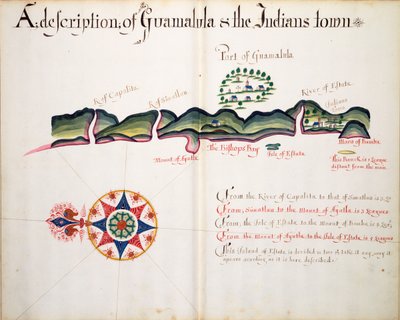 A description of Guamalula & the Indians town
Port of Guamalula
R. of Capalita
R. of Simatlan
River of Estata
Indians
The Bishops Bay
Isle of Estata
Mount of Ayutla
This Banck is a League
distant from the main
From the River of Capalita to that of Simatlan is
From Simatlan to the Mount of Ayutla is 2 Leagues
From the Isle of Estata to the Mount of
From the Mount of Ayutla to the Isle of Estata is 2 Leagues
This Island of Estata is decided in two & take it any way it
apears acording as it is here described